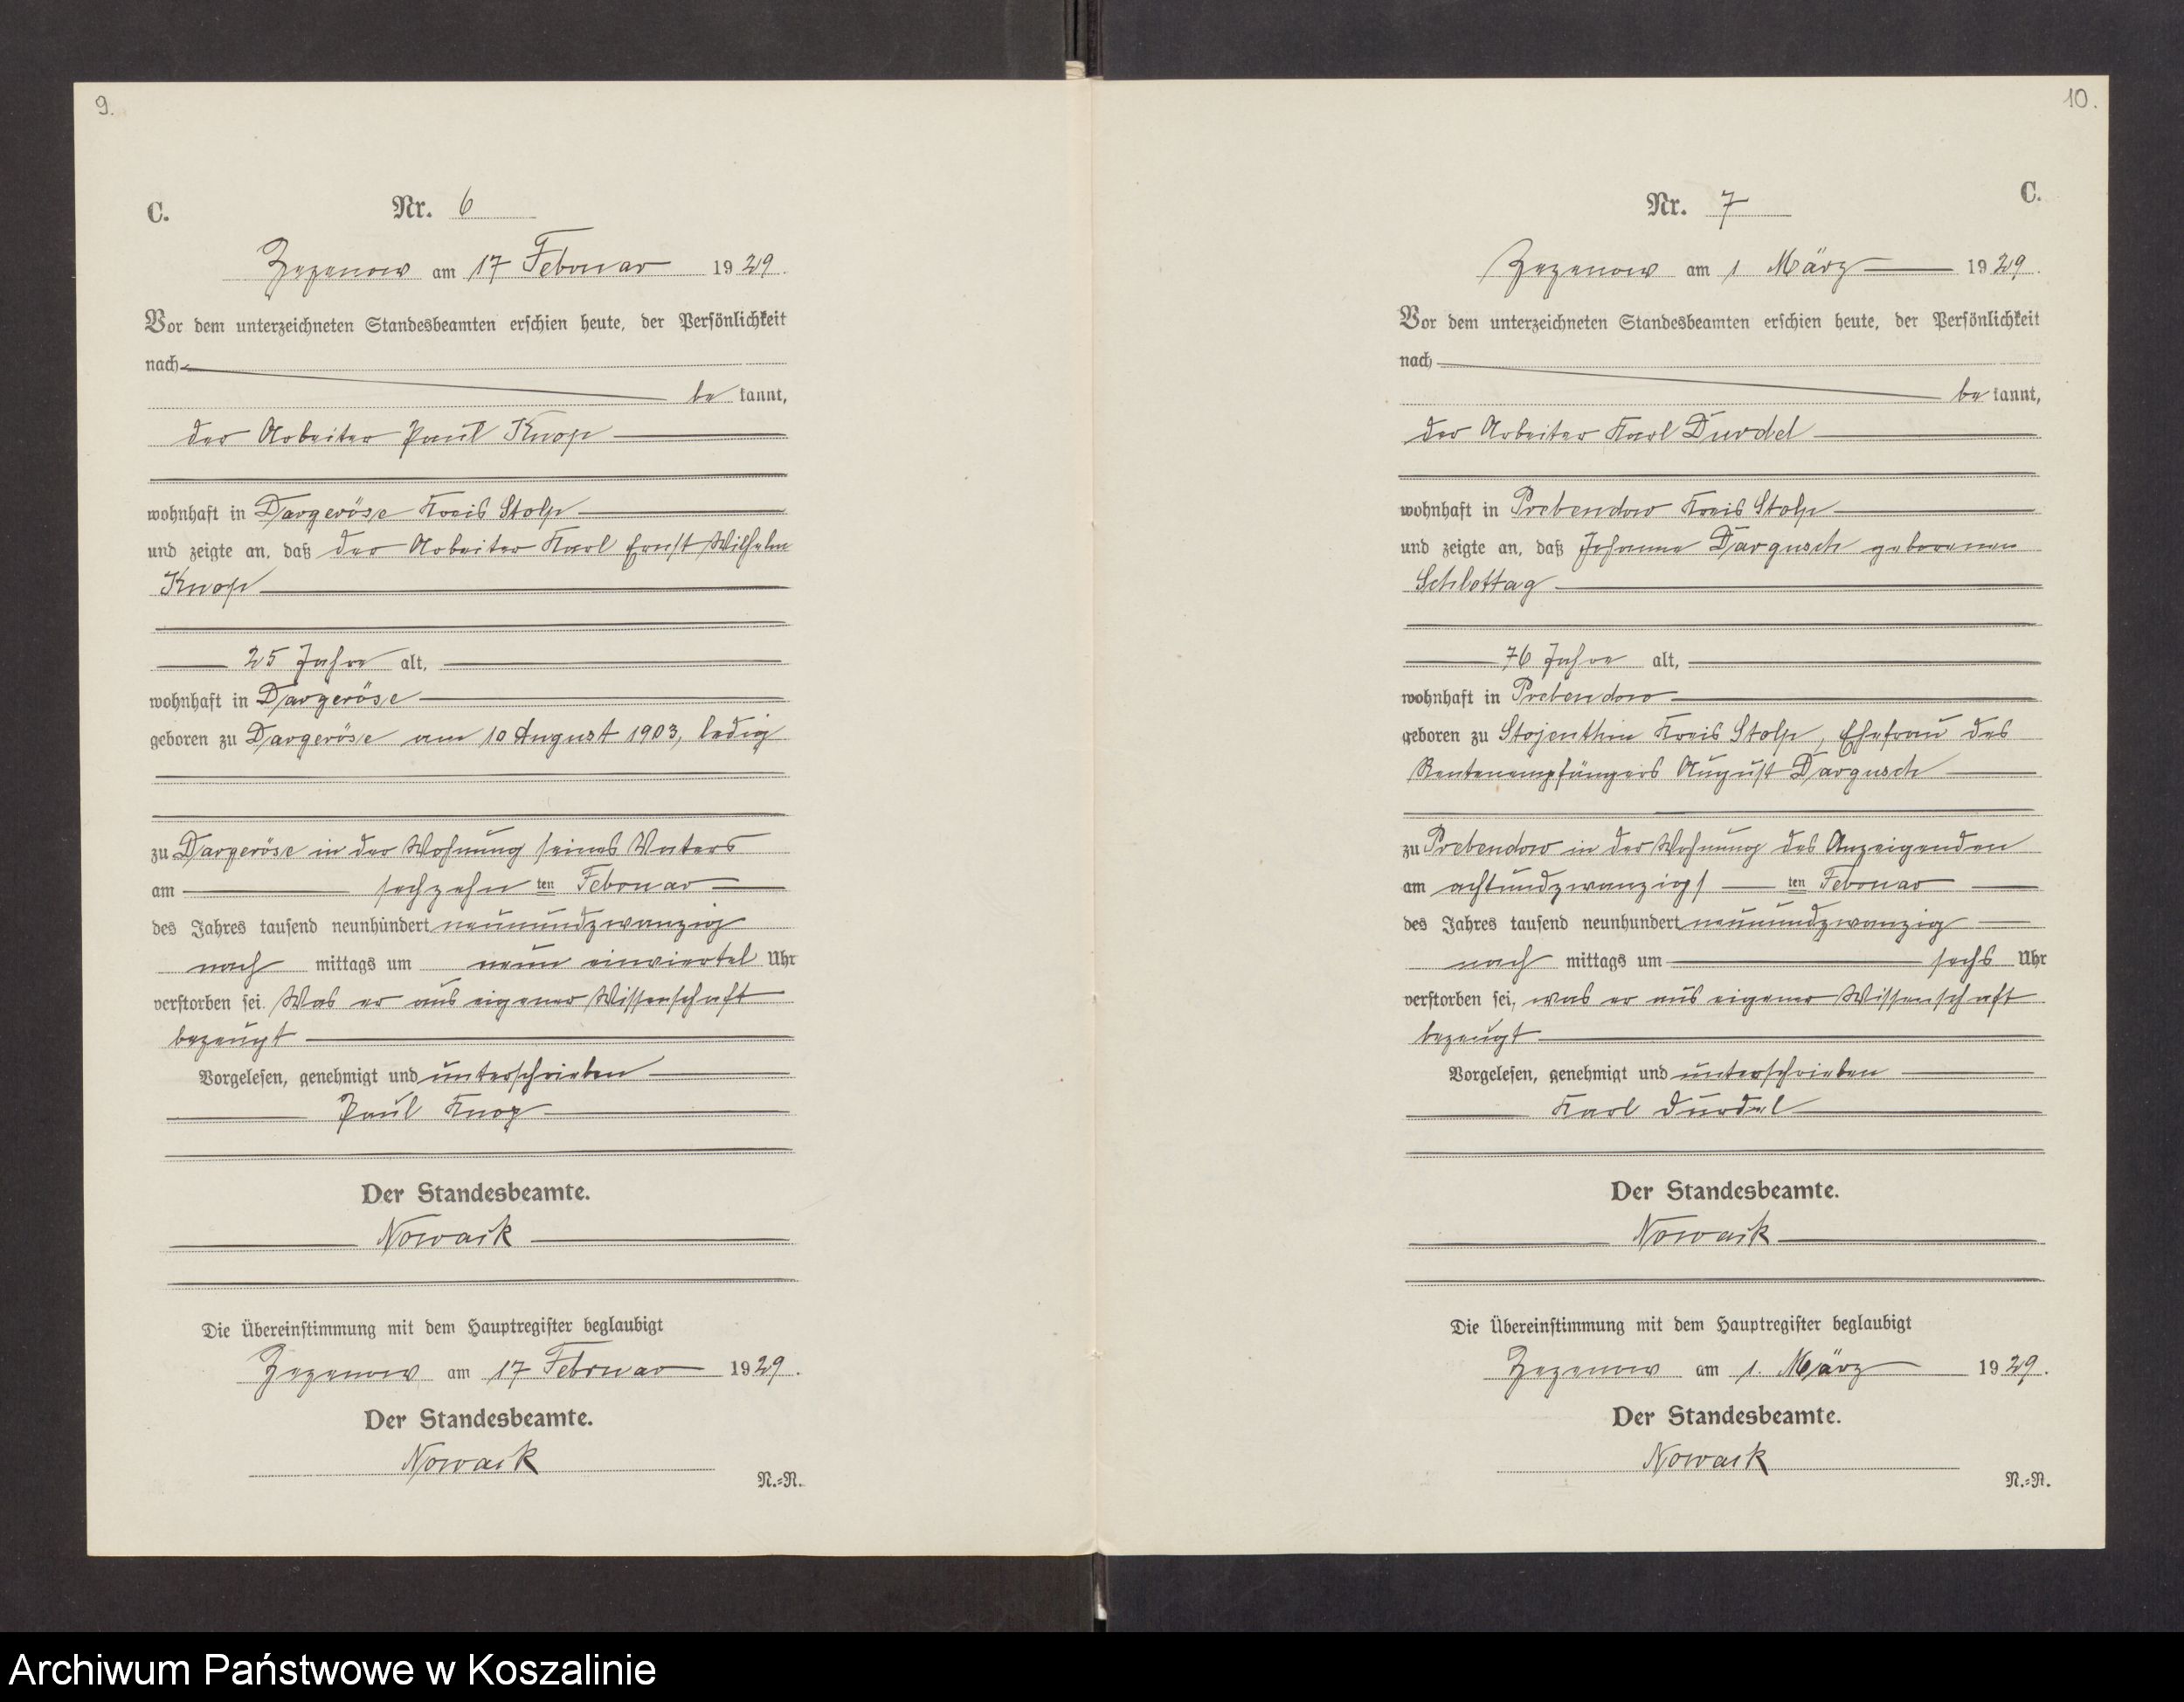 9.
C.
Nr. 6
Zezenow am 17 Februar 1929.
Vor dem unterzeichneten Standesbeamten erschien heute, der Persönlichkeit
nach
be kannt,
der Arbeiter Paul Knop
wohnhaft in Dargeröse Kreis Stolp
und zeigte an, daß der Arbeiter Karl Ernst Wilhelm
Knop
25 Jahre alt,
wohnhaft in Dargeröse
geboren zu Dargeröse am 10 August 1903, ledig
zu Dargeröse in der Wohnung seines Vaters
am sechzehn ten Februar
des Jahres tausend neunhundert neunundzwanzig
nach mittags um neun einviertel Uhr
verstorben sei. Was er aus eigener Wissenschaft
bezeugt
Vorgelesen, genehmigt und unterschrieben
Paul Knop
Der Standesbeamte.
Nowack
Die Übereinstimmung mit dem Hauptregister beglaubigt
Zezenow am 17 Februar 1929.
Der Standesbeamte.
Nowack
N.=R.
10.
C.
Nr. 7
Zezenow am 1 März 1929.
Vor dem unterzeichneten Standesbeamten erschien heute, der Persönlichkeit
nach
be kannt,
der Arbeiter Karl Durdel
wohnhaft in Prebendow Kreis Stolp
und zeigte an, daß Johanna Dargusch geborenen
Schlottag
76 Jahre alt,
wohnhaft in Prebendow
geboren zu Stojenthin Kreis Stolp, Ehefrau des
Rentenempfängers August Dargusch
zu Prebendow in der Wohnung des Anzeigenden
am achtundzwanzigs ten Februar
des Jahres tausend neunhundert neunundzwanzig
nach mittags um sechs Uhr
verstorben sei, was er aus eigener Wissenschaft
bezeugt
Vorgelesen, genehmigt und unterschrieben
Karl Durdel
Der Standesbeamte.
Nowack
Die Übereinstimmung mit dem Hauptregister beglaubigt
Zezenow am 1. März 1929.
Der Standesbeamte.
Nowack
N.=R.
Archiwum Państwowe w Koszalinie